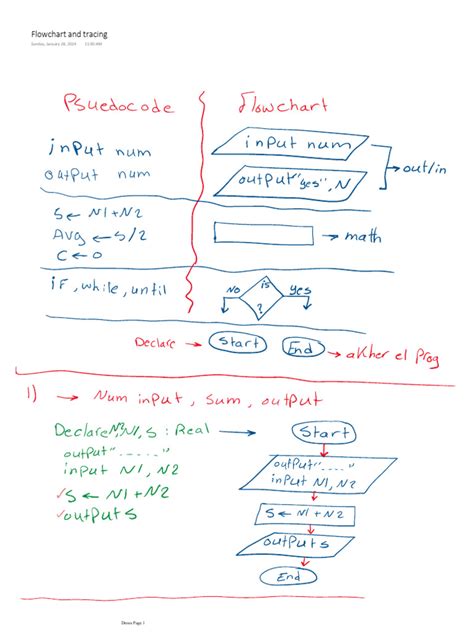 Flowchart and tracing
Sunday, January 28, 2024 11:40 AM
Psuedocode
flowchart
input num
output num
input num
output "yes", N
out/in
S ← N1+N2
Avg ← S/2
C ← 0
math
if, while, until
No
is
?
yes
Declare → Start
End → akher el Prog
1) → Num input, sum, output
Declare N1, S : Real →
output"......"
input N1, N2
S ← N1 + N2
output S
Start
output"......"
input N1, N2
S ← N1 + N2
output S
End
Demo Page 1